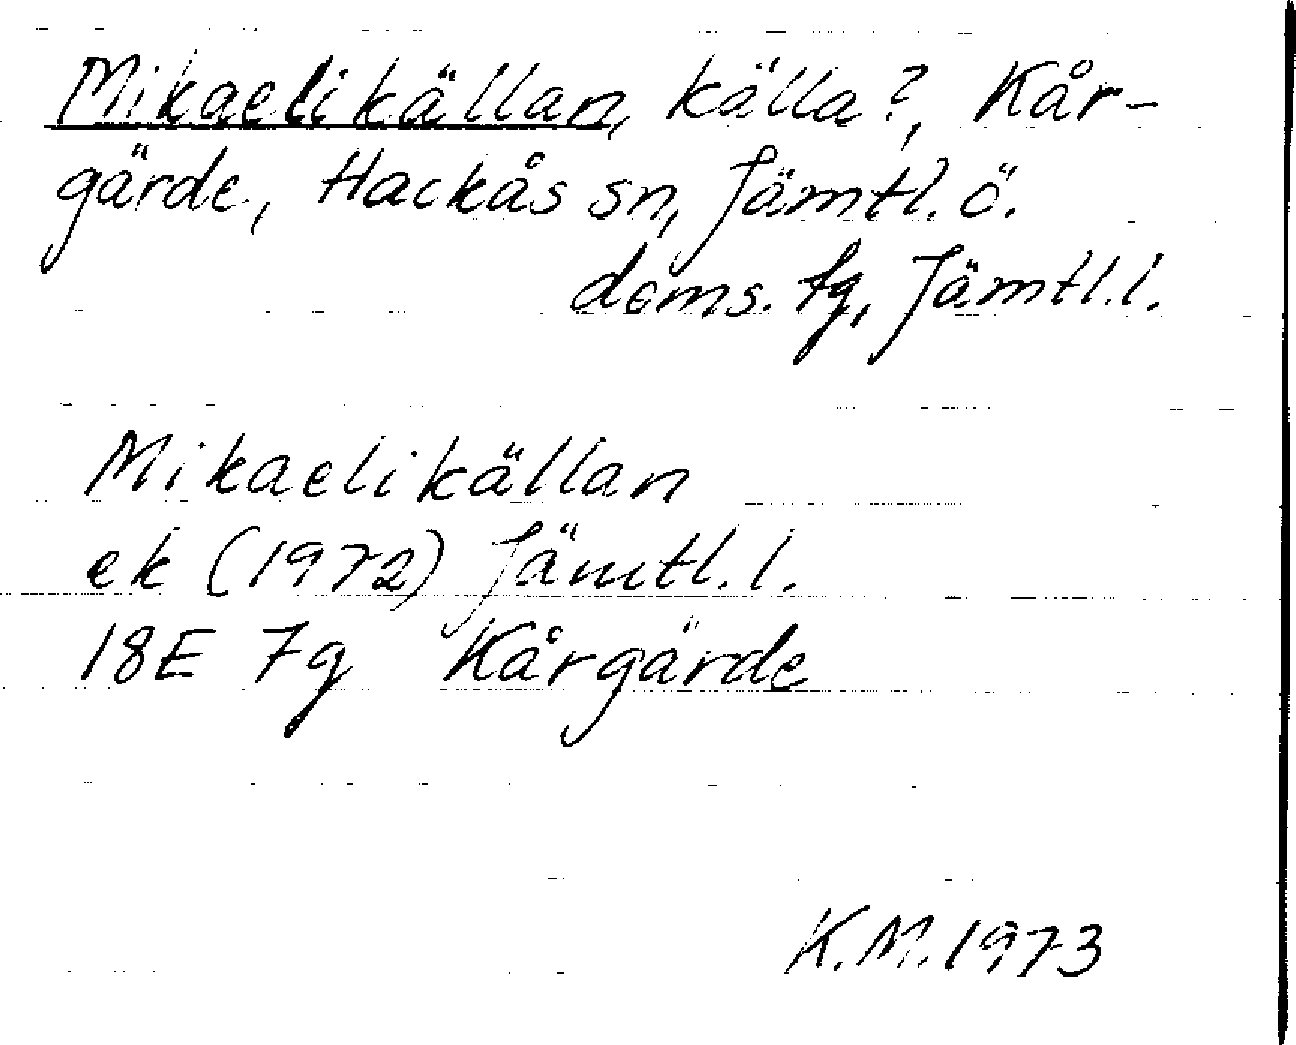 Mikaelikällan, källa?, Kår-
gärde, Hackås sn, Jämtl. ö.
doms. tg, Jämtl. l.
Mikaelikällan
ek (1972) Jämtl. l.
18E 7g Kårgärde
K.M. 1973